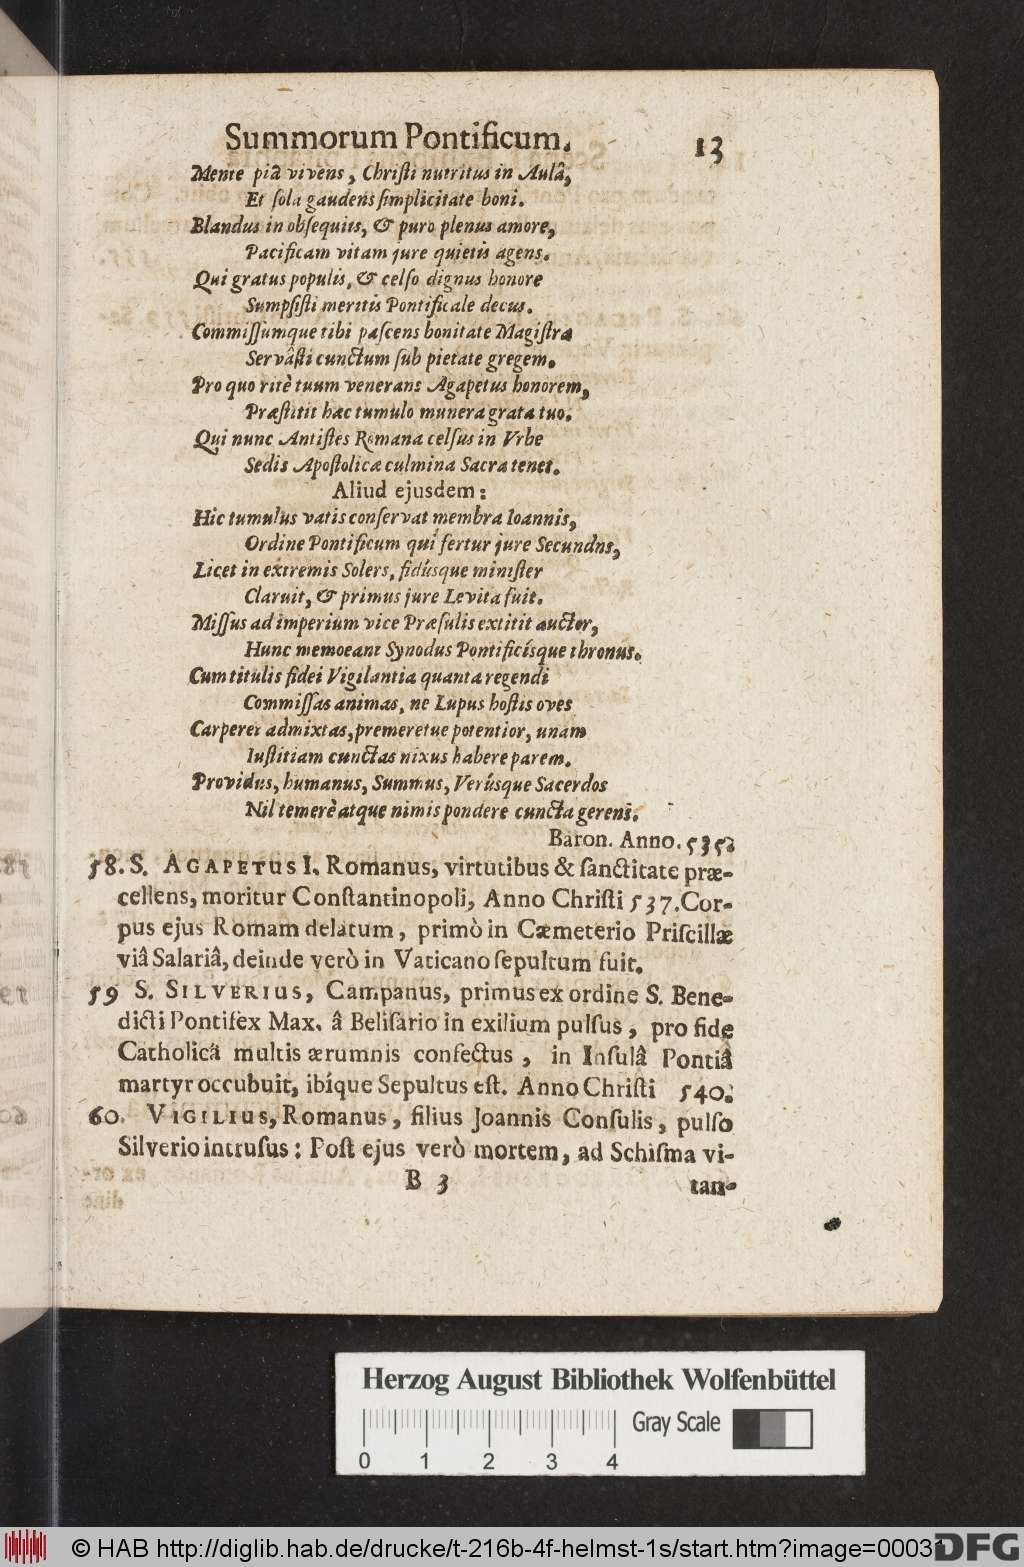 Summorum Pontificum. 13
Mente piâ vivens, Christi nutritus in Aulâ,
Et sola gaudens simplicitate boni.
Blandus in obsequiis, & puro plenus amore,
Pacificam vitam jure quietis agens.
Qui gratus populis, & celso dignus honore
Sumpsisti meritis Pontificale decus.
Commissumque tibi pascens bonitate Magistra
Servâsti cunctum sub pietate gregem.
Pro quo ritè tuum venerans Agapetus honorem,
Præstitit hæc tumulo munera grata tuo.
Qui nunc Antistes Romana celsus in Vrbe
Sedis Apostolicæ culmina Sacra tenet.
Aliud ejusdem:
Hic tumulus vatis conservat membra Ioannis,
Ordine Pontificum qui fertur jure Secundns,
Licet in extremis Solers, fidúsque minister
Claruit, & primus jure Levita fuit.
Missus ad imperium vice Præsulis extitit auctor,
Hunc memoeant Synodus Pontificísque thronus.
Cum titulis fidei Vigilantia quanta regendi
Commissas animas, ne Lupus hostis oves
Carperet admixtas, premeretue potentior, unam
Iustitiam cunctas nixus habere parem.
Providus, humanus, Summus, Verúsque Sacerdos
Nil temerè atque nimis pondere cuncta gerens.
Baron. Anno. 535.
58. S. AGAPETUS I. Romanus, virtutibus & sanctitate præ-
cellens, moritur Constantinopoli, Anno Christi 537. Cor-
pus ejus Romam delatum, primò in Cæmeterio Priscillæ
viâ Salariâ, deinde verò in Vaticano sepultum fuit.
59 S. SILVERIUS, Campanus, primus ex ordine S. Bene-
dicti Pontifex Max. â Belisario in exilium pulsus, pro fide
Catholicâ multis ærumnis confectus, in Insulâ Pontiâ
martyr occubuit, ibíque Sepultus est. Anno Christi 540.
60. VIGILIUS, Romanus, filius Joannis Consulis, pulso
Silverio intrusus: Post ejus verò mortem, ad Schisma vi-
B 3 tan-
Herzog August Bibliothek Wolfenbüttel
Gray Scale
0 1 2 3 4
© HAB http://diglib.hab.de/drucke/t-216b-4f-helmst-1s/start.htm?image=00031
DFG